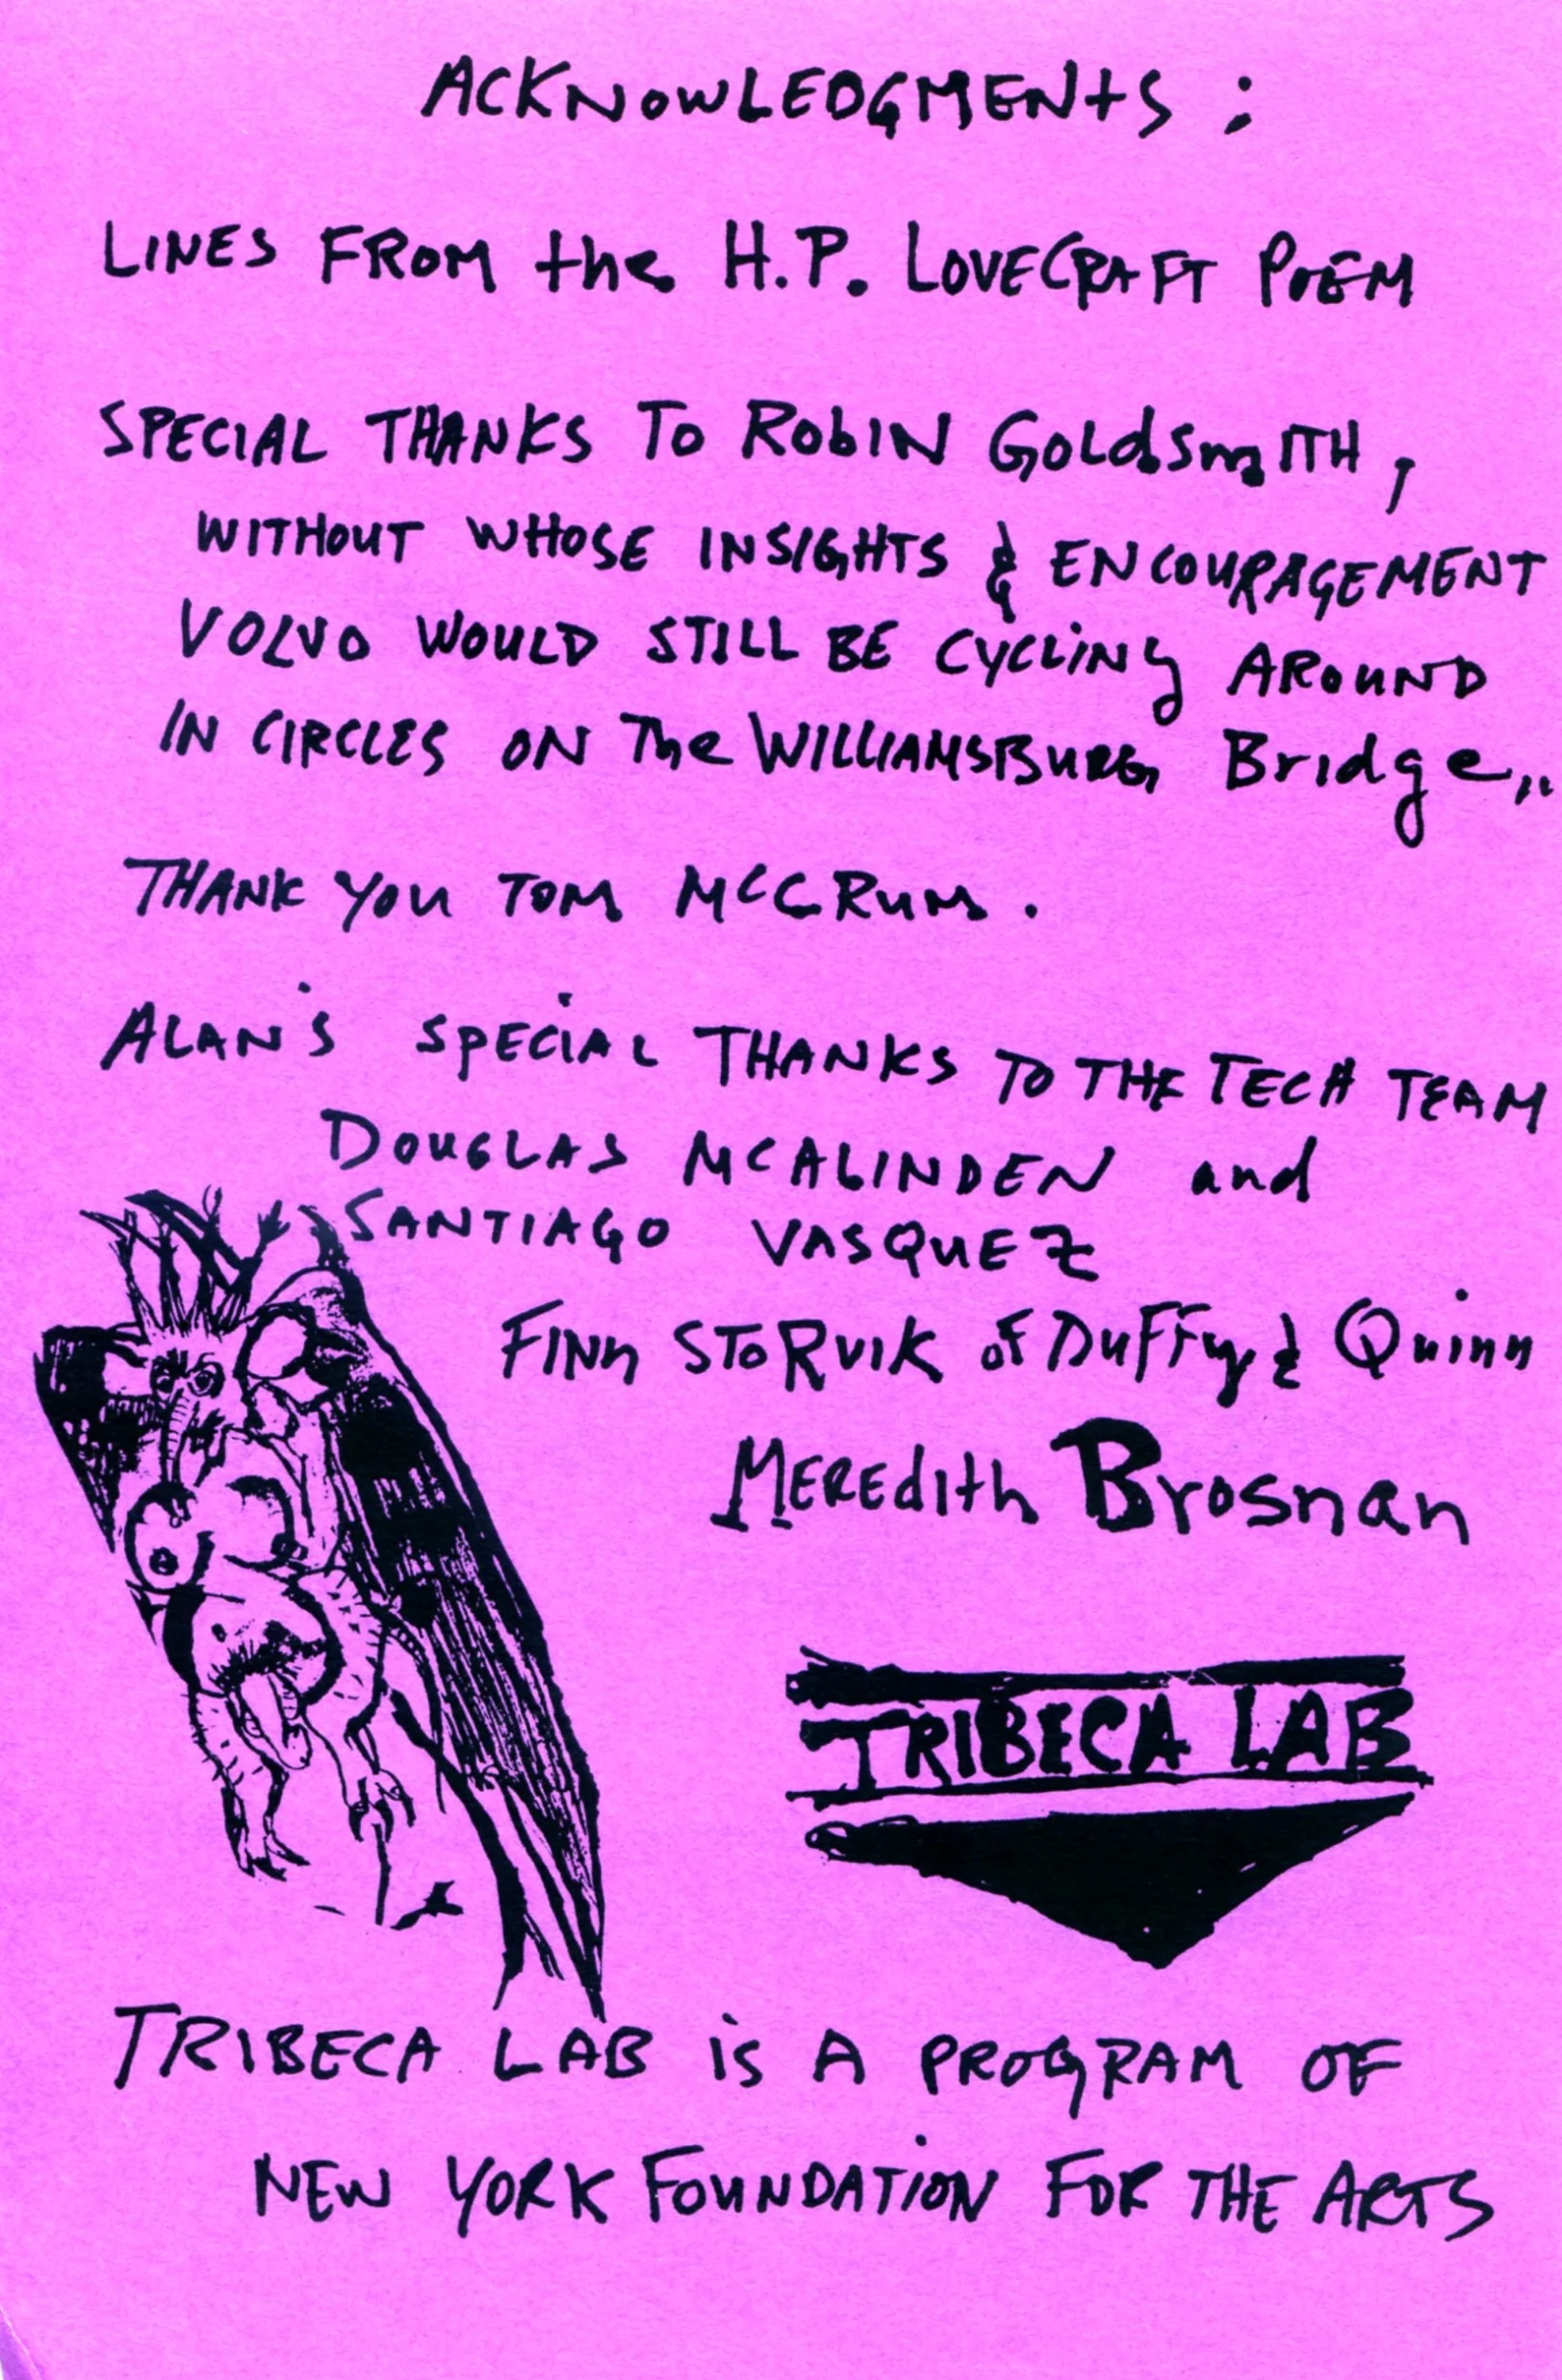 ACKNOWLEDGMENTS :
LINES FROM the H.P. LOVECRAFT POEM
SPECIAL THANKS TO RobIN GoldSmITH,
WITHOUT WHOSE INSIGHTS & ENCOURAGEMENT
VOLVO WOULD STILL BE CYCLiNg AROUND
IN CIRCLES ON The WILLIAMSBURG Bridge...
THANK YOU TOM McCRUM.
ALAN'S SPECiAL THANKS TO THE TECH TEAM
DOUGLAS MCALINDEN and
SANTIAGO VASQUEZ
FINN STORVIK of DuFFy & Quinn
MEREdith Brosnan
TRIBECA LAB
TRIBECA LAB iS A PROGRAM OF
NEW YORK FOUNDATiON FOR THE ARTS